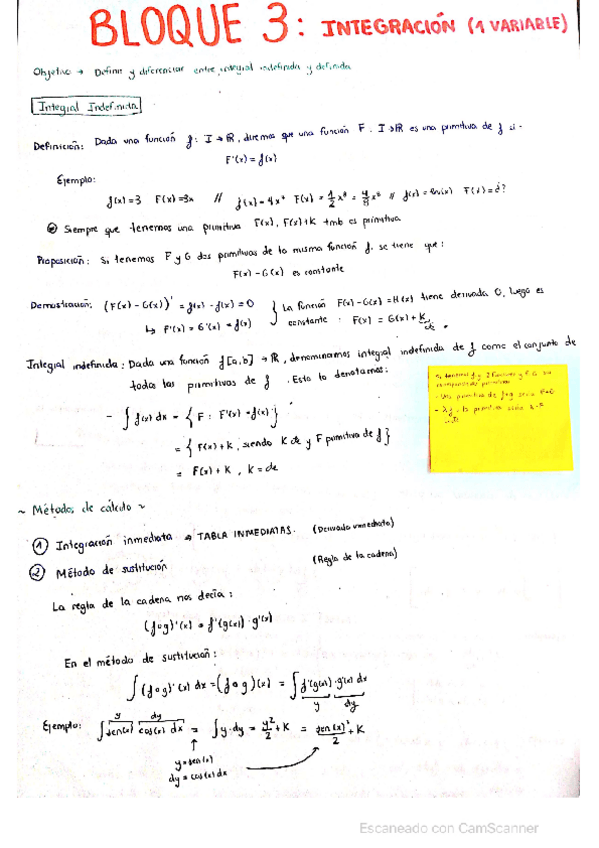 BLOQUE 3: INTEGRACIÓN (1 VARIABLE)
Objetivo → Definir y diferenciar entre integral indefinida y definida
Integral Indefinida
Definición: Dada una función f: I → ℝ, diremos que una función F: I → ℝ es una primitiva de f si -
F'(x) = f(x)
Ejemplo:
f(x) = 3 F(x) = 3x // f(x) = 4x⁷ F(x) = 1/2 x⁸ = 4/8 x⁸ // f(x) = ln(x) F(x) = ¿?
Siempre que tenemos una primitiva F(x), F(x)+K tmb es primitiva
Proposición: Si tenemos F y G dos primitivas de la misma función f, se tiene que:
F(x) - G(x) es constante
Demostración: (F(x) - G(x))' = f(x) - f(x) = 0 } La función F(x) - G(x) = H(x) tiene derivada 0, luego es
↳ F'(x) = G'(x) = f(x) constante: F(x) = G(x) + K
cte.
Integral indefinida: Dada una función f[a,b] → ℝ, denominamos integral indefinida de f como el conjunto de
todas las primitivas de f. Esto lo denotamos:
- ∫ f(x) dx = { F: F'(x) = f(x) }
= { F(x)+k, siendo K cte y F primitiva de f }
= F(x) + K, k = cte
- Una primitiva de f+g sería F+G
~ Métodos de cálculo ~
① Integración inmediata → TABLA INMEDIATAS. (Derivada inmediata)
② Método de sustitución (Regla de la cadena)
La regla de la cadena nos decía:
(f∘g)'(x) = f'(g(x)) · g'(x)
En el método de sustitución:
∫(f∘g)'(x) dx = (f∘g)(x) = ∫ f'(g(x)) · g'(x) dx
y dy
y dy
Ejemplo: ∫ sen(x) cos(x) dx = ∫ y · dy = y²/2 + K = sen(x)²/2 + K
↑
y = sen(x)
dy = cos(x) dx
Escaneado con CamScanner